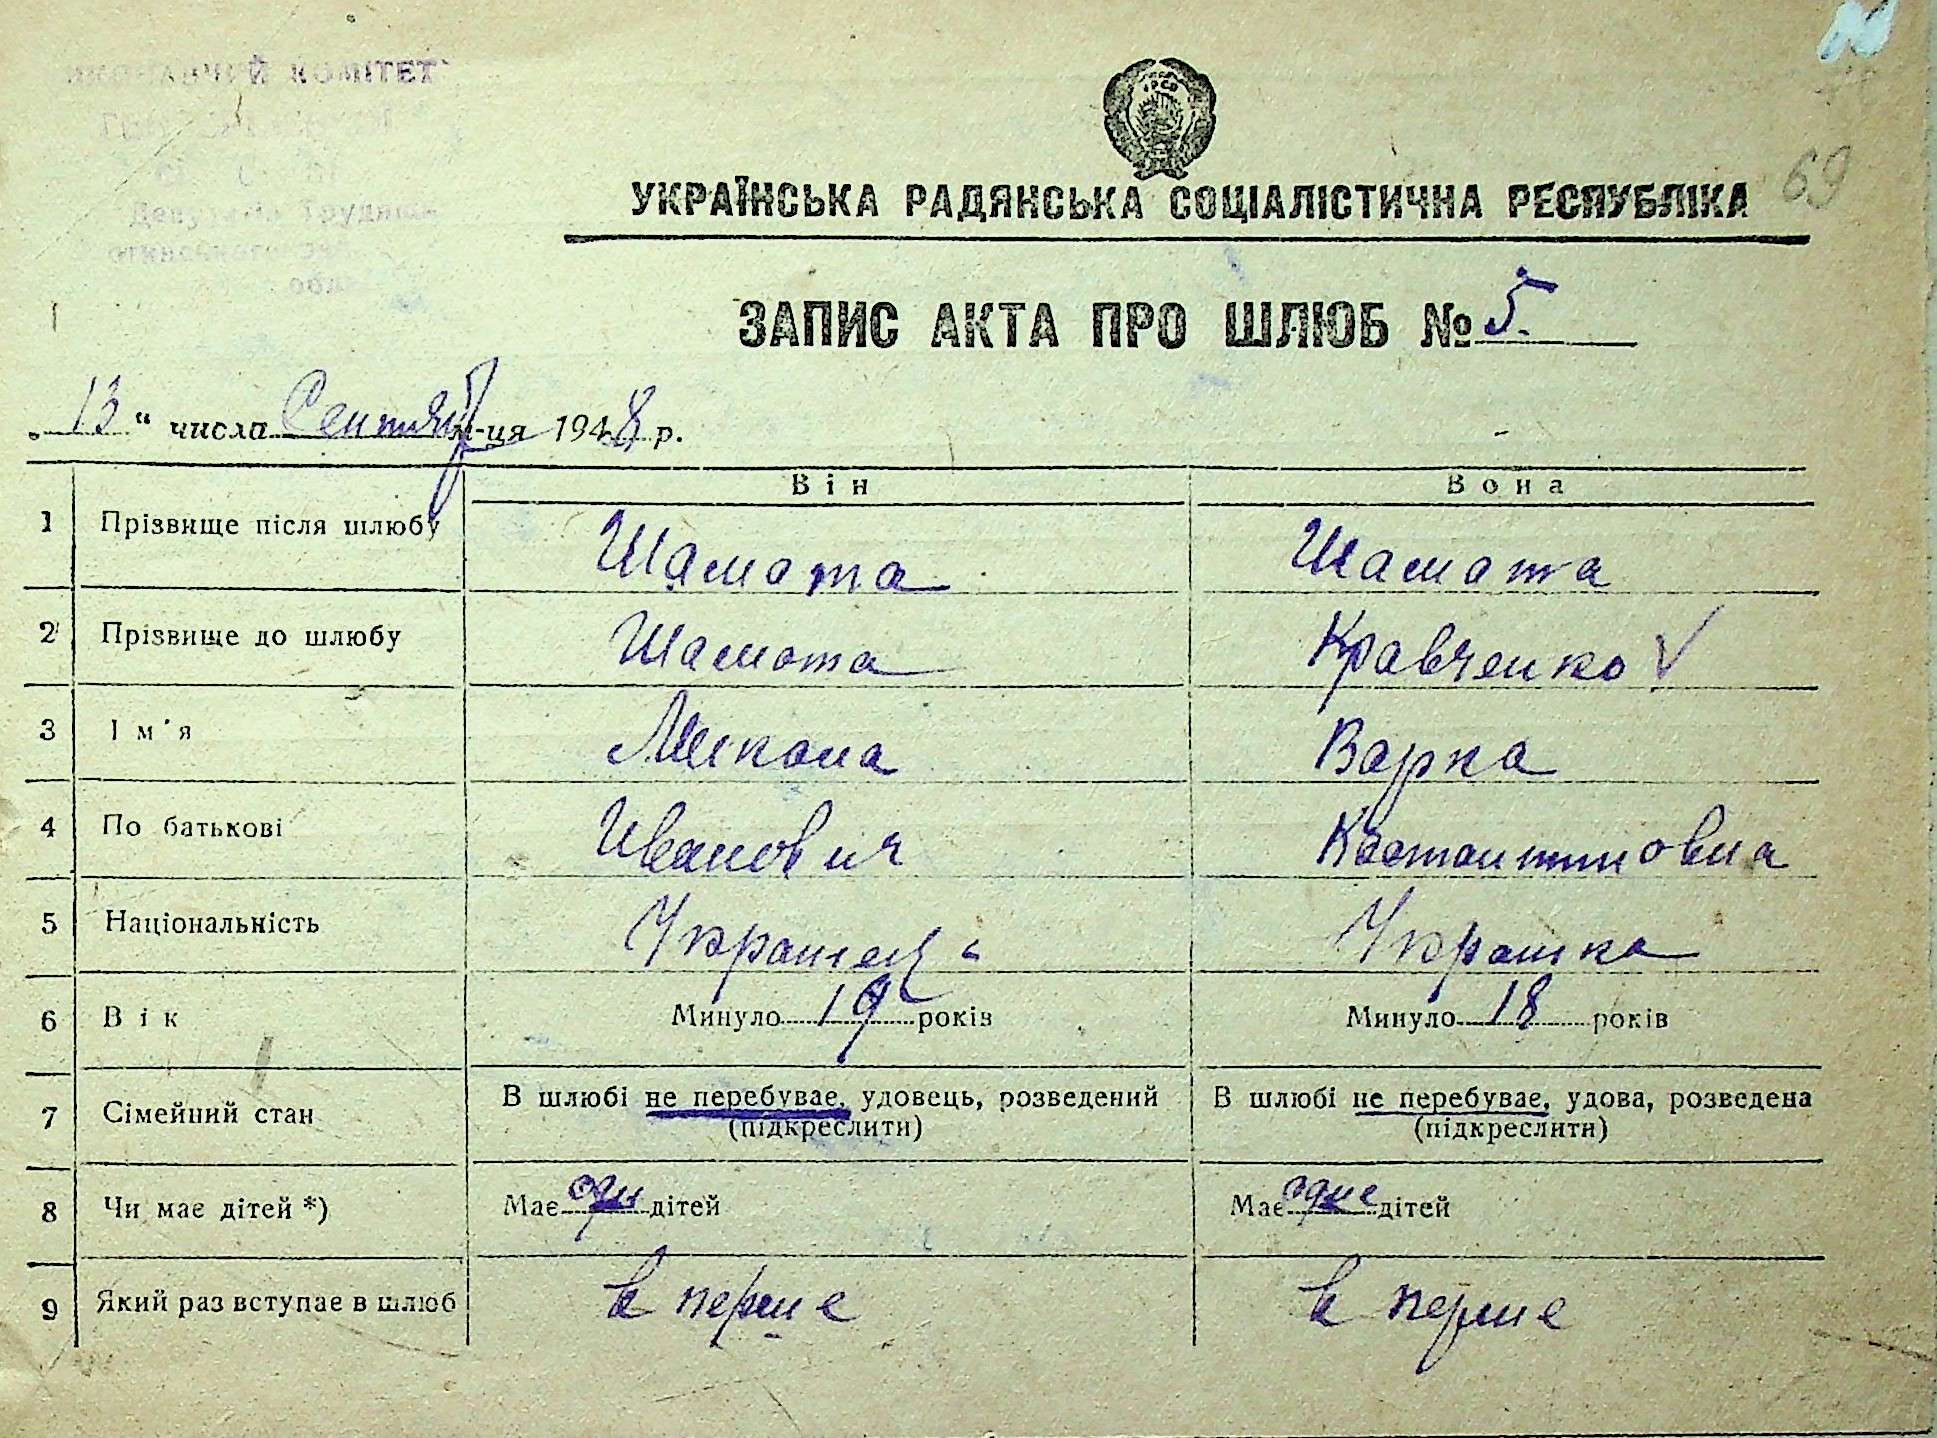 КОМІТЕТ
Депут Трудящ
69
УКРАЇНСЬКА РАДЯНСЬКА СОЦІАЛІСТИЧНА РЕСПУБЛІКА
ЗАПИС АКТА ПРО ШЛЮБ № 5.
„ 13 “ числа Сентяб м-ця 1948 р.
Він Вона
1 Прізвище після шлюбу Шамота Шамота
2 Прізвище до шлюбу Шамота Кравченко √
3 Ім'я Микола Варка
4 По батькові Иванович Костантиновна
5 Національність Украінец Украінка
6 Вік Минуло 19 років Минуло 18 років
7 Сімейний стан В шлюбі не перебуває, удовець, розведений В шлюбі не перебуває, удова, розведена
(підкреслити) (підкреслити)
8 Чи має дітей *) Має дітей Має дітей
9 Який раз вступає в шлюб в перше в перше